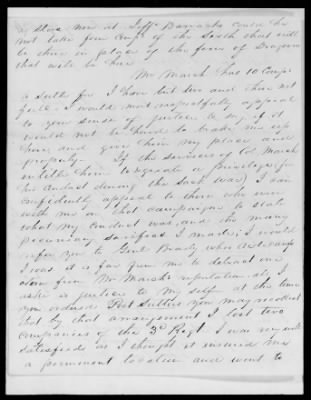 is there now at Jeff. Barracks could he
not take five Comps of the Sixth that will
be there in place of the five of Dragoons
that will be here
Mr Marsh has 10 Comps
to Suttle for I have but two and those not
full. I would most respectfully appeal
to your sense of justice to say if it
would not be hard to
here and give him my place and
property. If the services of Col Marsh
entitle him to a privilege for
his Conduct during the Sack War, I can
confidently appeal to those who were
with me on that campaign to state
what my Conduct was, and the many
pecuniary sacrifices I made, I would
refer you to Genl Brady whose
I was it is far from me to detract one
atom from Mr Marsh's reputation, all I
ask is justice to my self at the time
you ordered Post Sutlers you may recollect
that by that arrangement I lost two
companies of the 3d Regt. I was
satisfied as I thought it insured me
a permanent location and went to